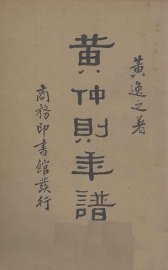 黄逸之著
黄仲則年譜
商務印書館發行